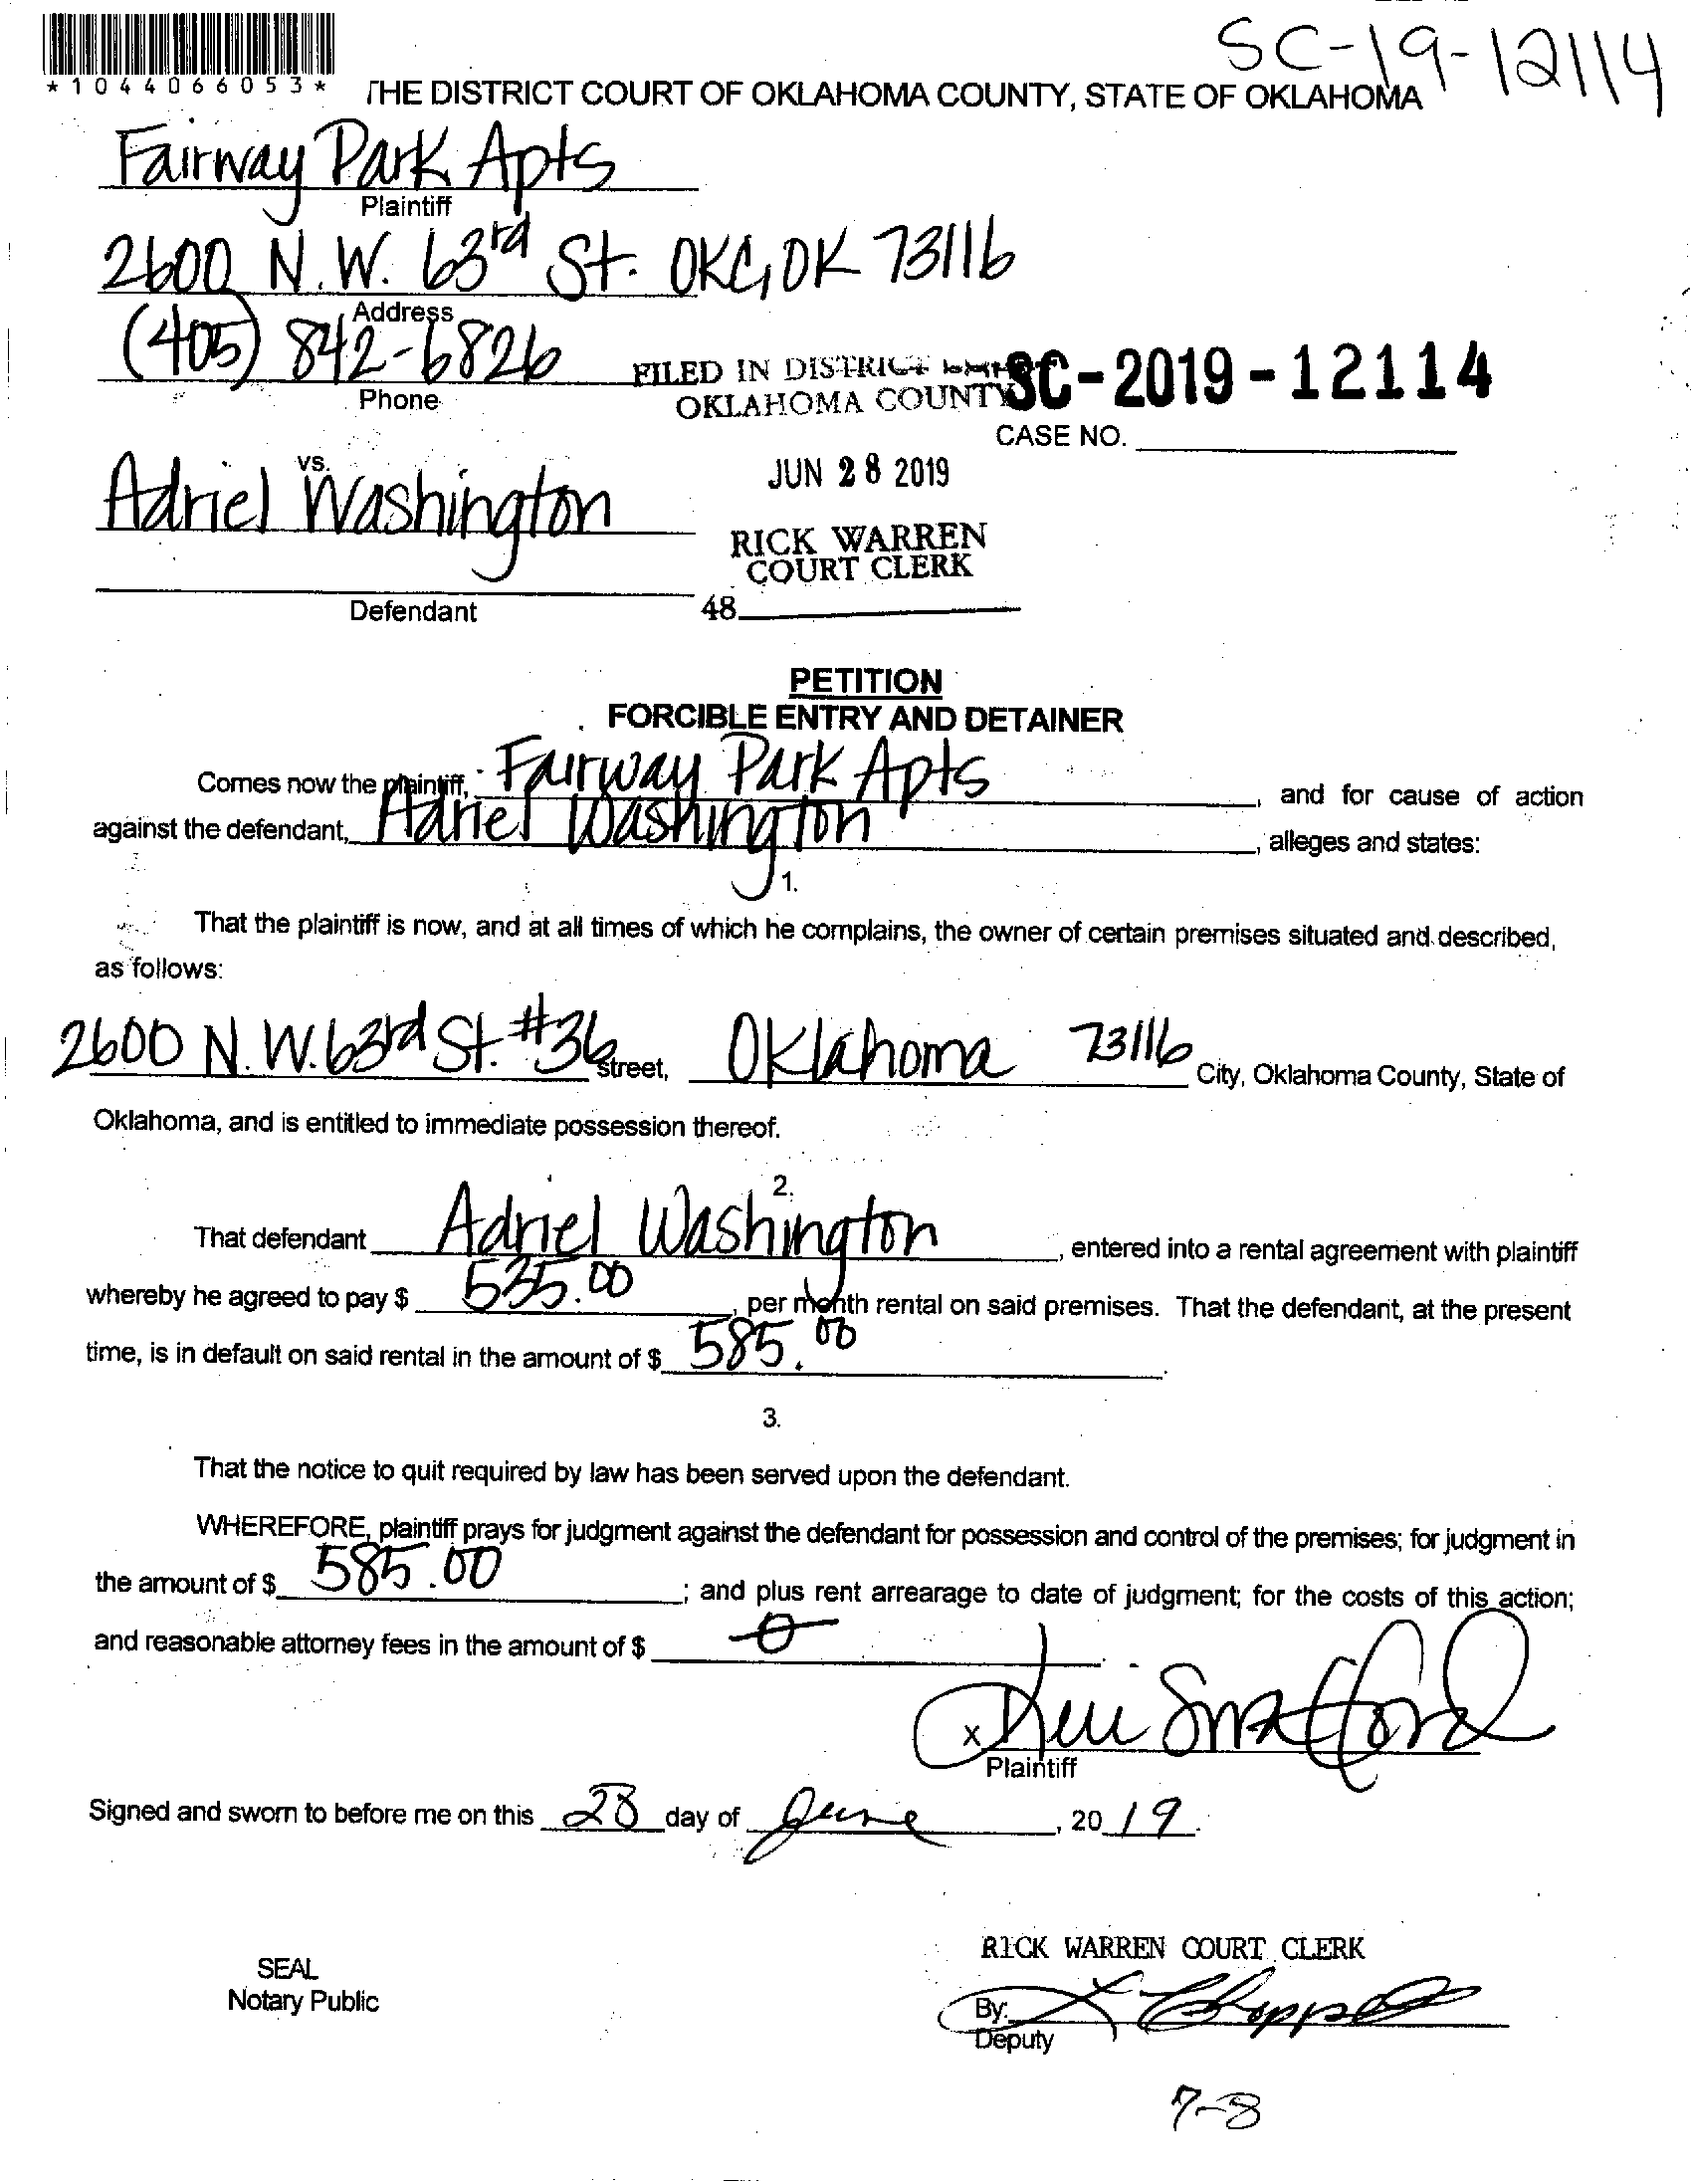 SC-19-12114
*1044066053*
THE DISTRICT COURT OF OKLAHOMA COUNTY, STATE OF OKLAHOMA
Fairway Park Apts
Plaintiff
2600 N.W. 63rd St. OKC, OK 73116
Address
(405) 842-6826
Phone
FILED IN DISTRICT
OKLAHOMA COUNTY
SC-2019-12114
CASE NO.
vs.
Adriel Washington
JUN 28 2019
RICK WARREN
COURT CLERK
Defendant
48
PETITION
FORCIBLE ENTRY AND DETAINER
Comes now the plaintiff, Fairway Park Apts, and for cause of action
against the defendant, Adriel Washington, alleges and states:
1.
That the plaintiff is now, and at all times of which he complains, the owner of certain premises situated and described,
as follows:
2600 N.W. 63rd St. #36 Street, Oklahoma 73116 City, Oklahoma County, State of
Oklahoma, and is entitled to immediate possession thereof.
2.
That defendant Adriel Washington, entered into a rental agreement with plaintiff
whereby he agreed to pay $ 535.00, per month rental on said premises. That the defendant, at the present
time, is in default on said rental in the amount of $ 585.00.
3.
That the notice to quit required by law has been served upon the defendant.
WHEREFORE, plaintiff prays for judgment against the defendant for possession and control of the premises; for judgment in
the amount of $ 585.00; and plus rent arrearage to date of judgment; for the costs of this action;
and reasonable attorney fees in the amount of $ 0.
X
Plaintiff
Signed and sworn to before me on this 28 day of June, 2019.
RICK WARREN COURT CLERK
SEAL
Notary Public
By:
Deputy
7-8